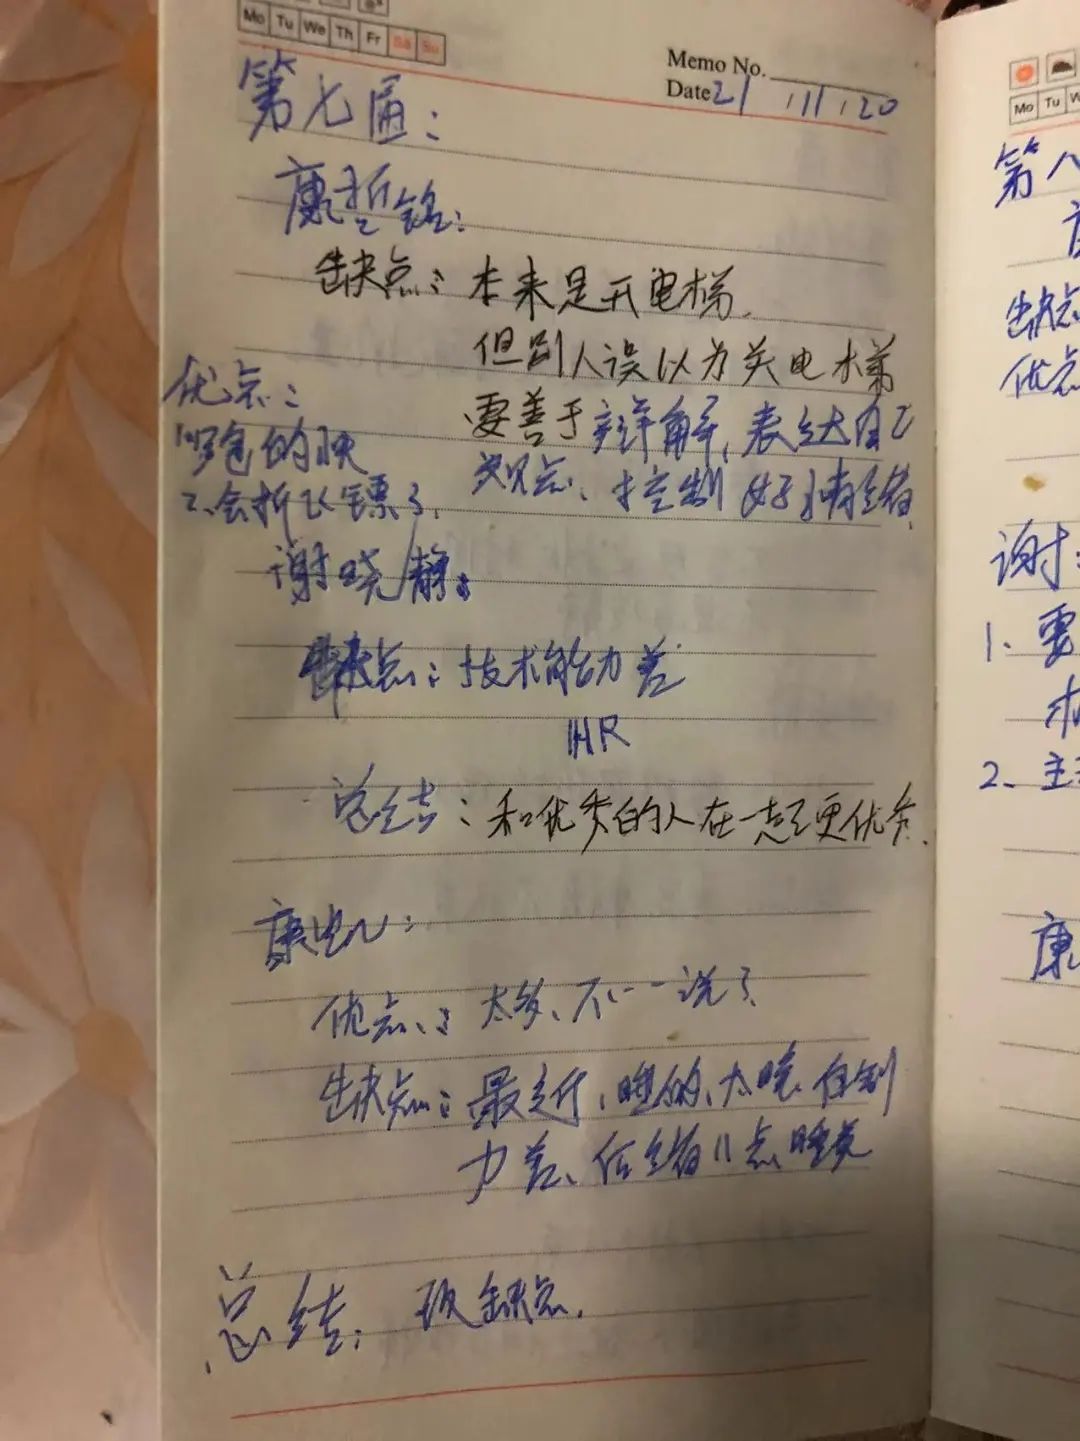 Mo Tu We Th Fr Sa Su
Memo No.
Date 21 / 11 / 20
第七届:
康哲铭:
缺点: 本来是开电梯.
但别人误以为关电梯
要善于辩解, 表达自己
观点、控制好情绪.
优点:
1.
2.会折飞镖了.
谢晓静:
缺点: 技术能力差
HR
总结: 和优秀的人在一起更优秀.
康
优点: 太多、不一一说了.
缺点: 最近、睡的、太晚、自制
力差、后续11点睡觉
总结: 改缺点.
Mo Tu
第八
缺点
优点
谢
1、要
2、主
康